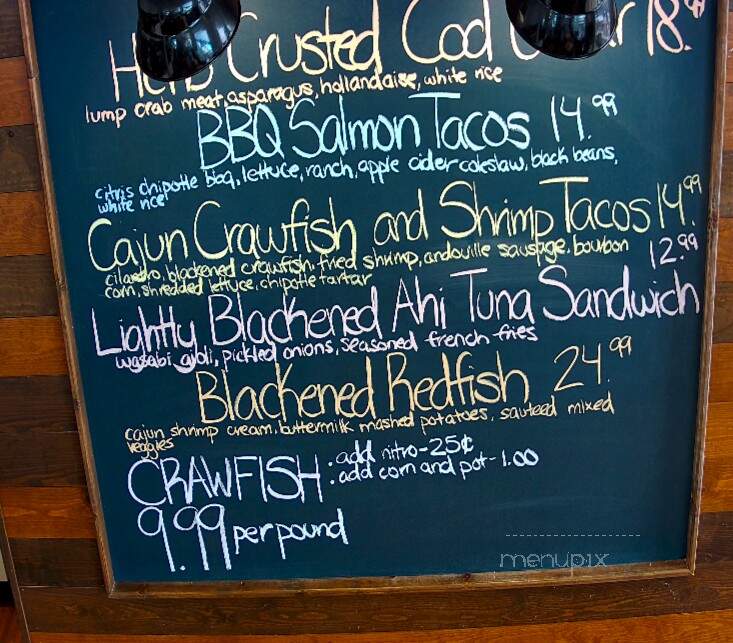 Herb Crusted Cod 18.
lump crab meat, asparagus, hollandaise, white rice
BBQ Salmon Tacos 14.99
citris chipotle bbq, lettuce, ranch, apple cider coleslaw, black beans,
white rice
Cajun Crawfish and Shrimp Tacos 14.99
cilantro, blackened crawfish, fried shrimp, andouille sausage, bourbon
corn, shredded lettuce, chipotle tartar
12.99
Lightly Blackened Ahi Tuna Sandwich
wasabi aioli, pickled onions, seasoned french fries
Blackened Redfish 24.99
cajun shrimp cream, buttermilk mashed potatoes, sauteed mixed
veggies
CRAWFISH : add nitro-25¢
: add corn and pot-1.00
9.99 per pound
menupix